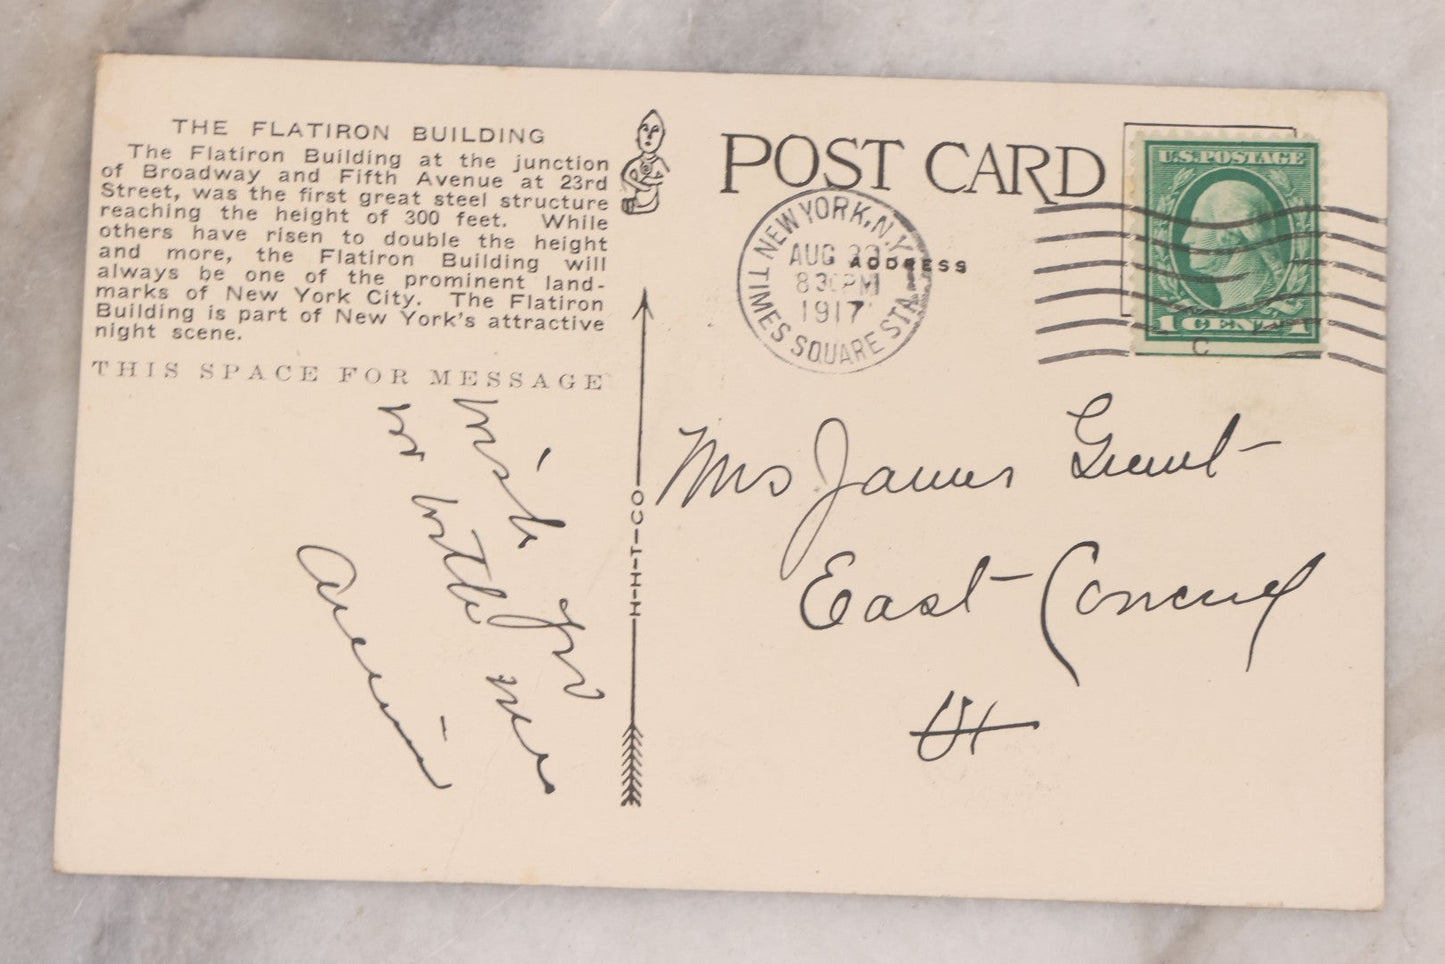 THE FLATIRON BUILDING
The Flatiron Building at the junction
of Broadway and Fifth Avenue at 23rd
Street, was the first great steel structure
reaching the height of 300 feet. While
others have risen to double the height
and more, the Flatiron Building will
always be one of the prominent land-
marks of New York City. The Flatiron
Building is part of New York's attractive
night scene.
THIS SPACE FOR MESSAGE
Wish you
were
H-H-T-CO
POST CARD
ADDRESS
NEW YORK, N.Y.
AUG
830PM
1917
TIMES SQUARE STA.
U.S. POSTAGE
1 CENT 1
C
Mrs James Grant
East Concord
Vt